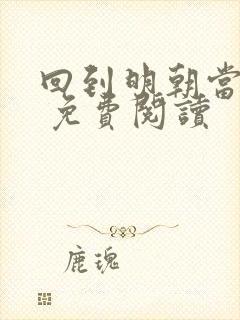 回到明朝當
免費閱讀
鹿瑰